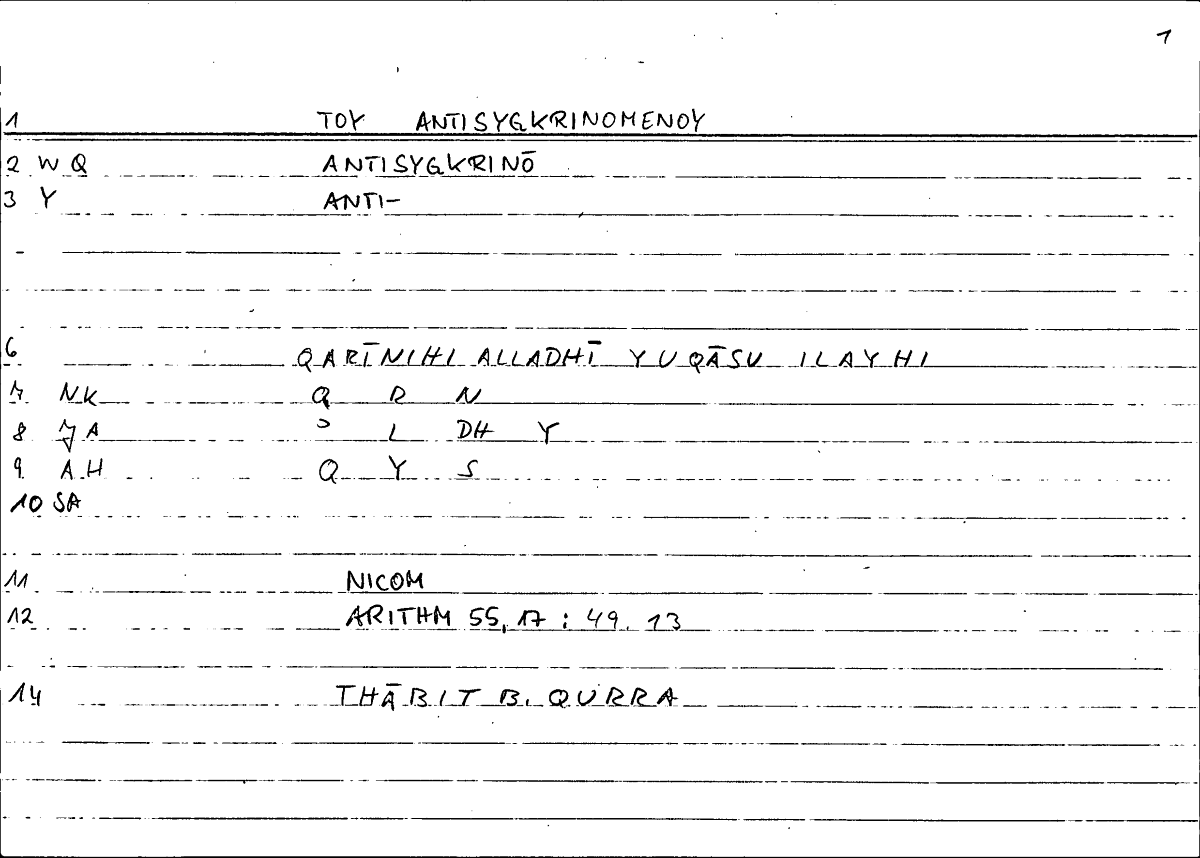 1
1 TOY ANTISYGKRINOMENOY
2 W Q ANTISYGKRINŌ
3 Y ANTI-
6 QARĪNIHI ALLADHĪ YUQĀSU ILAYHI
7 NK Q R N
8 A ʾ L DH Y
9 AH Q Y S
10 SA
11 NICOM
12 ARITHM 55,17 : 49.13
14 THĀBIT B. QURRA